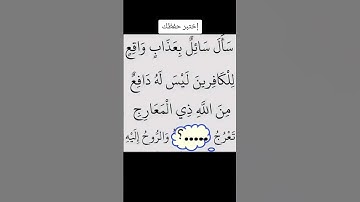 إختبر حفظك
سَأَلَ سَائِلٌ بِعَذَابٍ وَاقِعٍ
لِلْكَافِرِينَ لَيْسَ لَهُ دَافِعٌ
مِنَ اللَّهِ ذِي الْمَعَارِجِ
تَعْرُجُ .....؟ وَالرُّوحُ إِلَيْهِ